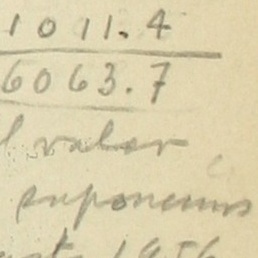 1011.4
6063.7
l valor
suponemos
1956